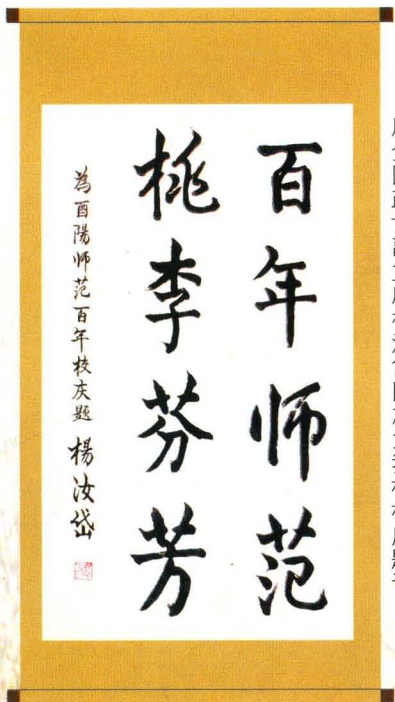 百年师范
桃李芬芳
為酉陽师范百年校庆题 楊汝岱